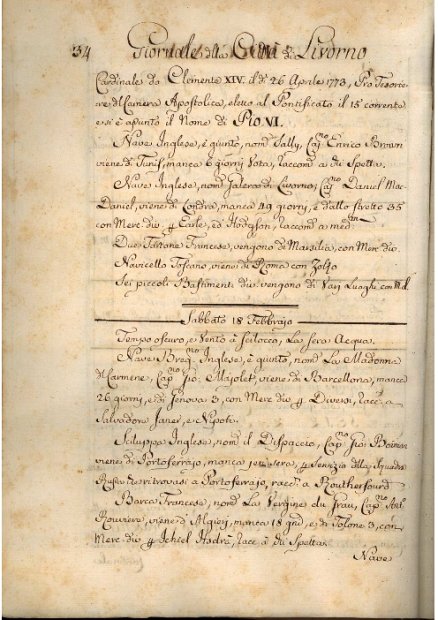 34 Giornale della Città di Livorno
Cardinale da Clemente XIV. il dì 26 Aprile 1773, Pro Tesorie
re di Camera Apostolica, eletto al Pontificato il 15 corrente
e si è apunto il Nome di PIO VI.
Nave Inglese, è giunto, nom.ª Sally, Cap.no Enrico Brown
viene di Tunis, manca 6 giorni Vota, raccom.a a di Spetta.
Nave Inglese, nom.ª Galera di Livorno, Cap.no Daniel Mac
Daniel, viene di Londra, manca 49 giorni, e dallo stretto 35
con Merc. div. p Earle, ed Hodgson, raccom.a a med.mi
Due Tartane Francese, vengono di Marsilia, con Merc. div.
Navicello Toscano, viene di Roma con Zolfo
Sei piccoli Bastimenti div. vengono di Varj Luoghi con M. d.
Sabbato 18 Febbrajo
Tempo oscuro, e Vento à Scilocco, La sera Acqua.
Nave Inglese, è giunto, nom.ª La Madonna
di Carmene, Cap.no Gio: viene di Barcellona, manca
26 giorni, e di Genova 3, con Merc. div. p Diversi, racc.a a
Salvadore Janer, e Nipoti.
Sciluppa Inglese, nom.ª il Dispaccio, Cap.no Gio:
viene di Portoferrajo, manca jeri sera, p Servizio della Squadra
Russa ritrovasi a Portoferrajo, racc.a a Routherfourd
Barca Francese, nom.ª La Vergine du Grau, Cap.no Ant.
Rouviere, viene d'Algieri, manca 18 gni, e di Tolone 3, con
Merc. div. p racc.a à di Spetta.
Nave